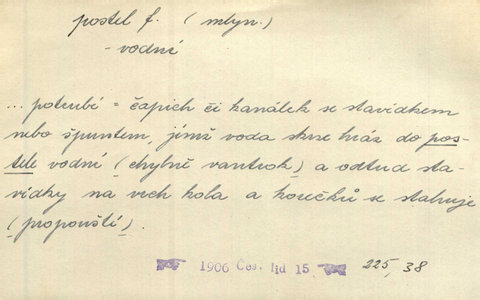 postel f. (mlyn.)
- vodní
... potrubí = čapích či kanálek se stavidkem
nebo špuntem, jímž voda skrze hráz do pos-
tele vodní (chybně vantrok) a odtud sta-
vidky na vrch kola a korečků se stahuje
(propouští).
1906 Čes. lid 15
225, 38